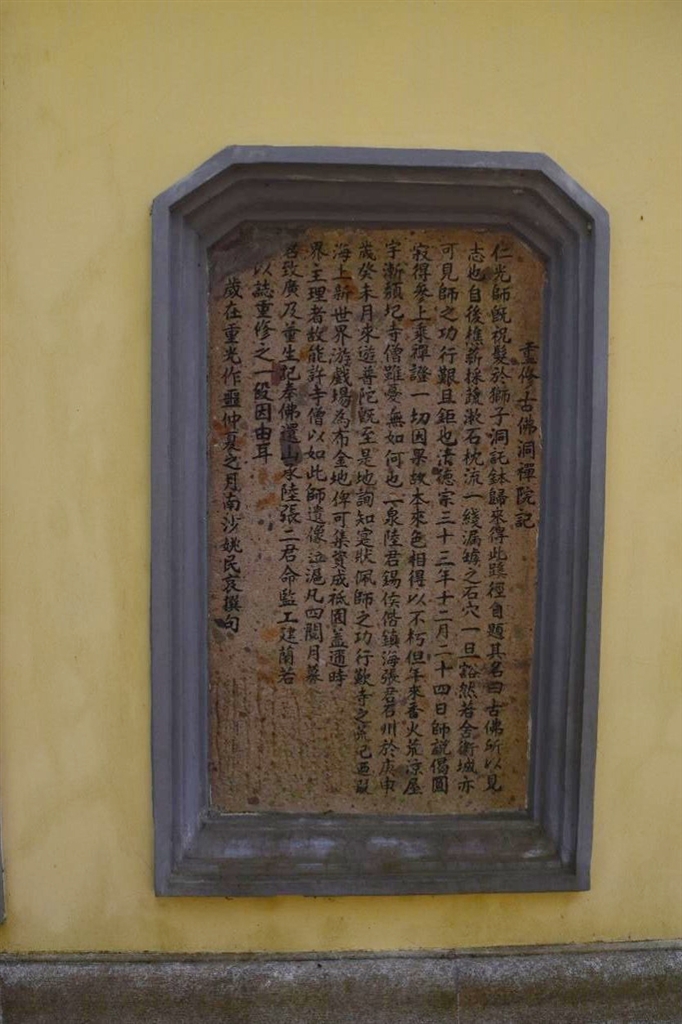 重修古佛洞禪院記
仁光師既祝髮於獅子洞託鉢歸來得此蹊徑自題其名曰古佛所以見
志也自後樵薪採蔬漱石枕流一綫漏罅之石穴一旦豁然若舍衛城亦
可見師之功行艱且鉅也清德宗三十三年十二月二十四日師說偈圓
寂得參上乘禪證一切因果故本來色相得以不朽但年來香火荒凉屋
宇漸頹圮寺僧雖憂無如何也二泉陸君錫侯偕鎮海張君若州於庚申
歲癸未月來遊普陀既至是地詢知寔狀佩師之功行歎寺之荒己
海上新世界游戲場為布金地俾可集資成祇園蓋邇時
界主理者故能許寺僧以如此師遺像泣滬凡四閱月募
名致廣及蕫生記奉佛還山承陸張二君命監工建蘭若
以誌重修之一段因由耳
歲在重光作噩仲夏之月南沙姚民哀撰句